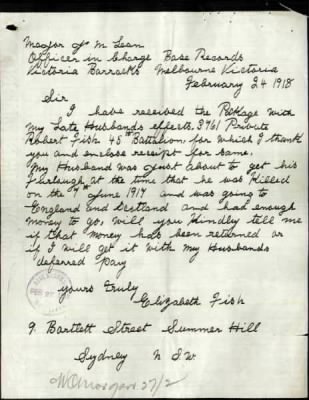 Major J M Lean
Officer in Charge Base Records
Victoria Barracks Melbourne Victoria
February 24 1918
Sir
I have received the Package with
my Late Husbands effects 3761 Private
Robert Fish 45th Battalion for which I thank
you and enclose receipt for same.
My Husband was just about to get his
furlough at the time that he was killed
on the 7th June 1917 and was going to
England and Scotland and had enough
money to go, will you kindly tell me
if that money has been returned or
if I will get it with my Husbands
deferred pay
yours truly
Elizabeth Fish
9. Bartlett Street Summer Hill
Sydney N S W
27/2